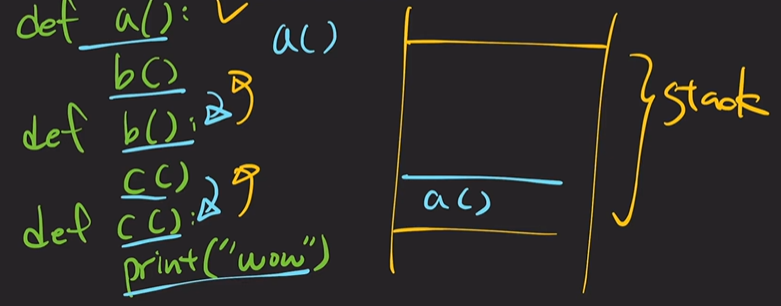 def a():
b()
def b():
c()
def c():
print("wow")
a()
a()
stack